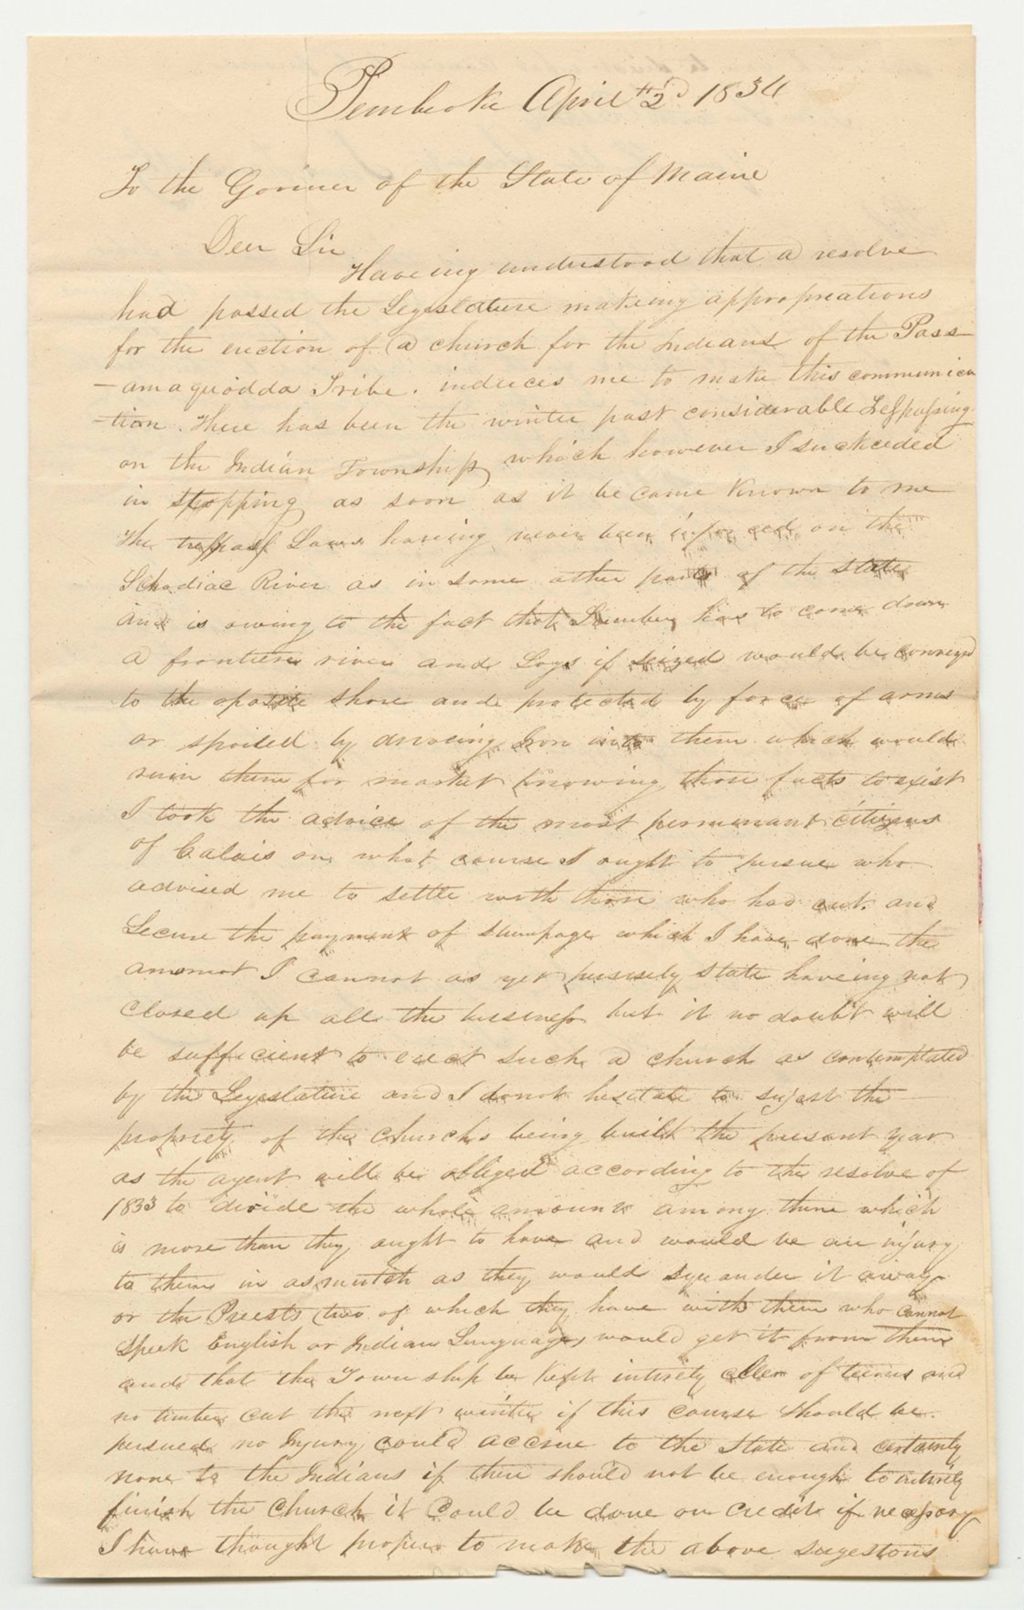 Pembroke April 2d 1834
To the Goviner of the State of Maine
Dear Sir
Haveing understood that a resolve
had passed the Legeslature makeing appropriations
for the erection of a church for the Indians of the Pass-
-amaquodda Tribe. induces me to make this communica
-tion. There has been the winter past considerable Trespassing
on the Indian Township which however I suckceded
in stopping as soon as it became known to me
The trespass Laws haveing never been inforced on the
Schodiac River as in some other parts of the State
and is owing to the fact that Lumber has to come down
a frontier river and Logs if seized would be conveyed
to the oposite shore and protected by force of arms
or spoiled by driveing Iron into them which would
ruin them for market knowing those facts to exist
I took the advice of the most permanant citizens
of Calais on what course I ought to persue who
advised me to settle with those who had cut and
Secure the payment of stumpage which I have done the
amomnt I cannot as yet presisely state haveing not
closed up all the bussiness but it no doubt will
be sufficient to erect such a church as contemplated
by the Legeslature and I do not hesitate to sujest the
propriety of the Church being built the present year
as the agent will be obliged according to the resolve of
1833 to divide the whole amount among them which
is more than they ought to have and would be an injury
to them in asmutch as they would squander it away
or the Preests two of which they have with them who cannot
speek English or Indian Languages would get it from them
and that the Township be kept intirely clear of teams and
no timber cut the next winter if this course should be
persued no Injury could accrue to the State and certainly
none to the Indians if there should not be enough to intirely
finish the Church it could be done on credit if necessary
I have thought proper to make the above sugestons